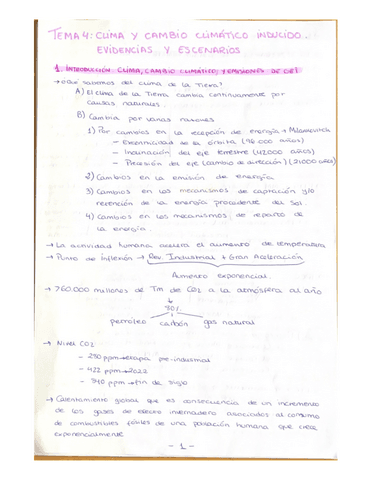 TEMA 4: CLIMA Y CAMBIO CLIMÁTICO INDUCIDO.
EVIDENCIAS Y ESCENARIOS
1. INTRODUCCIÓN CLIMA, CAMBIO CLIMÁTICO, Y EMISIONES DE GEI
→ ¿Qué sabemos del clima de la Tierra?
A) El clima de la Tierra cambia continuamente por
causas naturales.
B) Cambia por varias razones
1) Por cambios en la recepción de energía → Milankovitch
- Excentricidad de la órbita (96.000 años)
- Inclinación del eje terrestre (42.000 años)
- Precesión del eje (cambio de dirección) (21.000 años)
2) Cambios en la emisión de energía
3) Cambios en los mecanismos de captación y/o
retención de la energía procedente del Sol.
4) Cambios en los mecanismos de reparto de
la energía.
→ La actividad humana acelera el aumento de temperatura
→ Punto de inflexión → Rev. Industrial + Gran Aceleración
Aumento exponencial
→ 760.000 millones de Tm de CO2 a la atmósfera al año
petróleo carbón gas natural
→ Nivel CO2
- 280 ppm → etapa pre-industrial
- 422 ppm → 2022
- 940 ppm → fin de siglo
→ Calentamiento global que es consecuencia de un incremento
de los gases de efecto invernadero asociados al consumo
de combustibles fósiles de una población humana que crece
exponencialmente
- 1 -